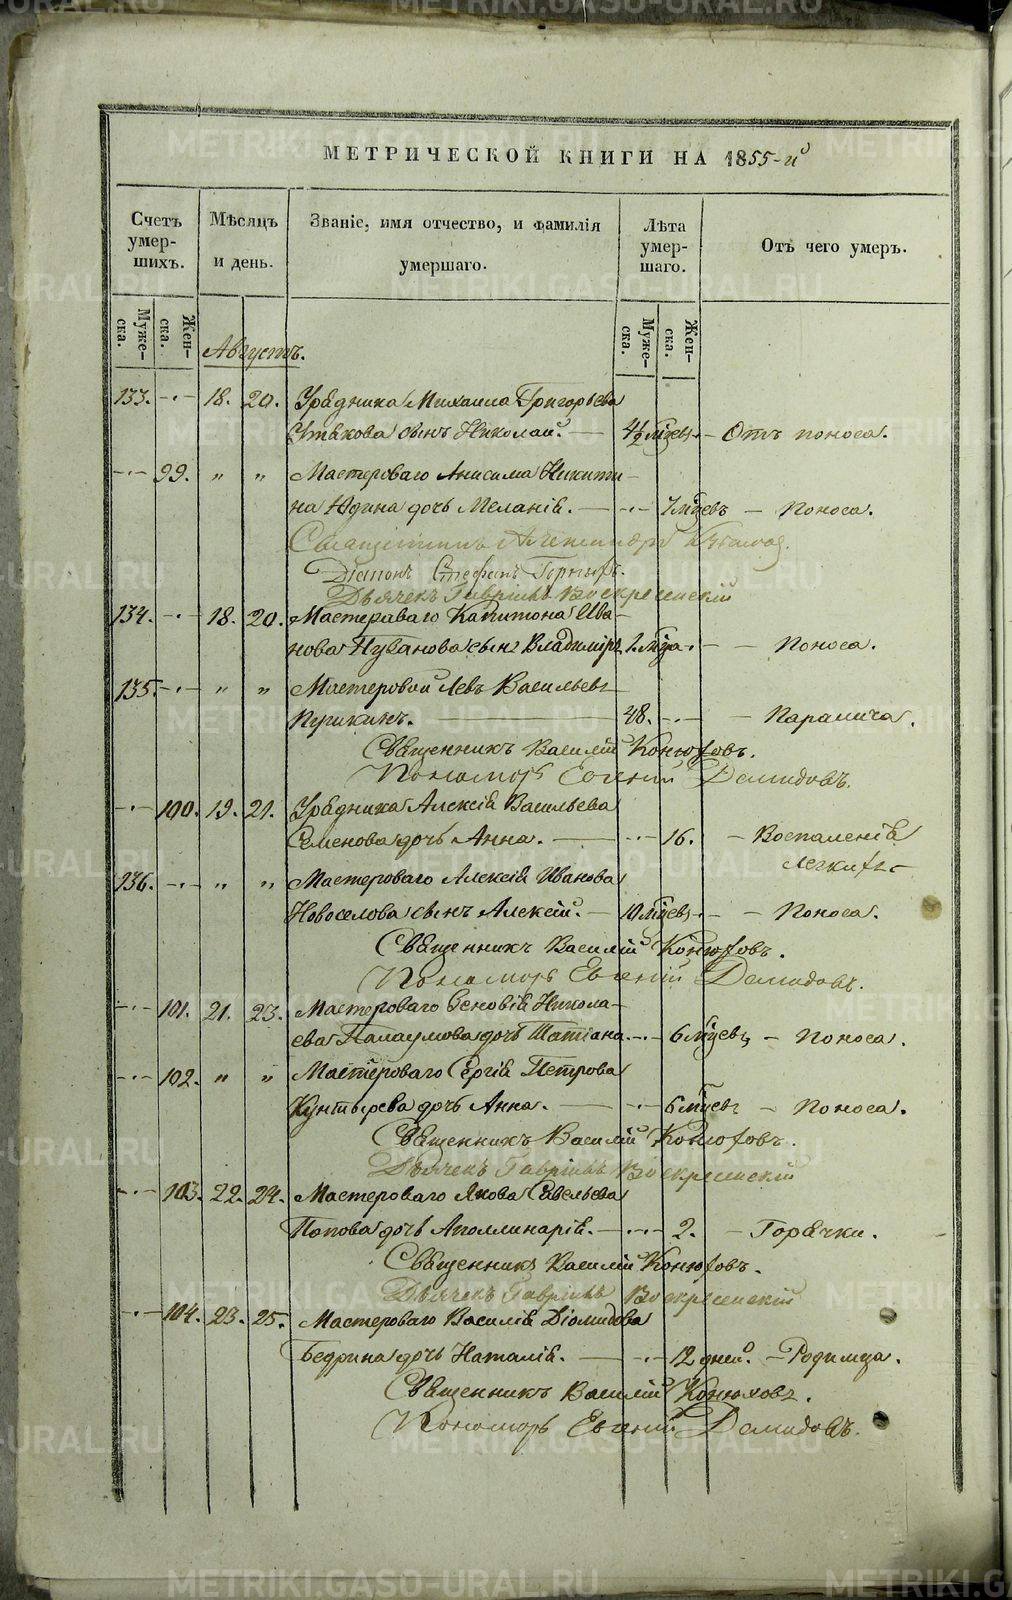 МЕТРИЧЕСКОЙ КНИГИ НА 1855-й
Счетъ умер-шихъ. Мѣсяцъ и день. Званіе, имя отчество, и фамилія умершаго. Лѣта умер-шаго. Отъ чего умеръ.
Муже-ска. Жен-ска. Муже-ска. Жен-ска.
Августъ.
133. -·- 18. 20. Урядника Михаила Григорьева
Утякова сынъ Николай. — 4½ мѣсец. - Отъ поноса.
-·- 99. " " Мастероваго Анисима Никити-
на Юдина дочь Меланія. — -·- 7 мѣсецъ - Поноса.
Священникъ Александръ
Діаконъ Стефанъ Горныхъ.
Дьячекъ Гавріилъ Воскресенскій
134. -·- 18. 20. Мастероваго Капитона Ива-
нова сынъ Владиміръ - Поноса.
135. -·- " " Мастеровой Левъ Васильевъ
48. -·- - Паралича.
Священникъ Василій Конюховъ.
Пономарь Евгений Демидовъ.
-·- 100. 19. 21. Урядника Алексія Васильева
Семенова дочь Анна. — -·- 16. - Воспаленія
легкихъ
136. -·- " " Мастероваго Алексія Иванова
Новоселова сынъ Алексій. - 10 мѣсецъ -·- - Поноса.
Священникъ Василій Конюховъ.
Пономарь Евгеній Демидовъ.
-·- 101. 21. 23. Мастероваго Зеновія Никола-
ева дочь Татіана. -·- 6 мѣсецъ - Поноса.
-·- 102. " " Мастероваго Сергія Петрова
дочь Анна. — -·- 6 мѣсецъ - Поноса.
Священникъ Василій Конюховъ.
Дьячекъ Гавріилъ Воскресенскій
-·- 103. 22. 24. Мастероваго Якова Савельева
Попова дочь Аполлинарія. — -·- 2. - Горячки.
Священникъ Василій Конюховъ.
Дьячекъ Гавріилъ Воскресенскій
-·- 104. 23. 25. Мастероваго Василія Діомидова
Бедрина дочь Наталія. — -·- 12 дней. - Родимца.
Священникъ Василій Конюховъ.
Пономарь Евгеній Демидовъ.
METRIKI.GASO-URAL.RU